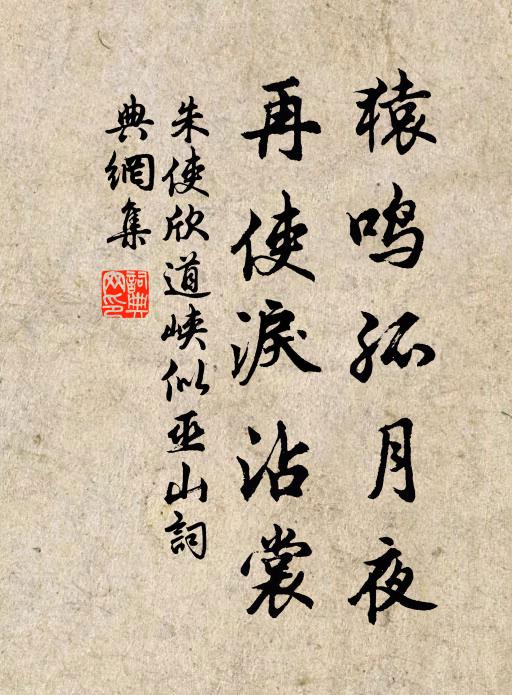 猿鸣孤月夜
再使淚沾裳
朱使欣道峡似巫山詞
典網集
詞典網印